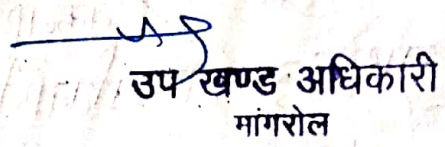 उप खण्ड अधिकारी
मांगरोल